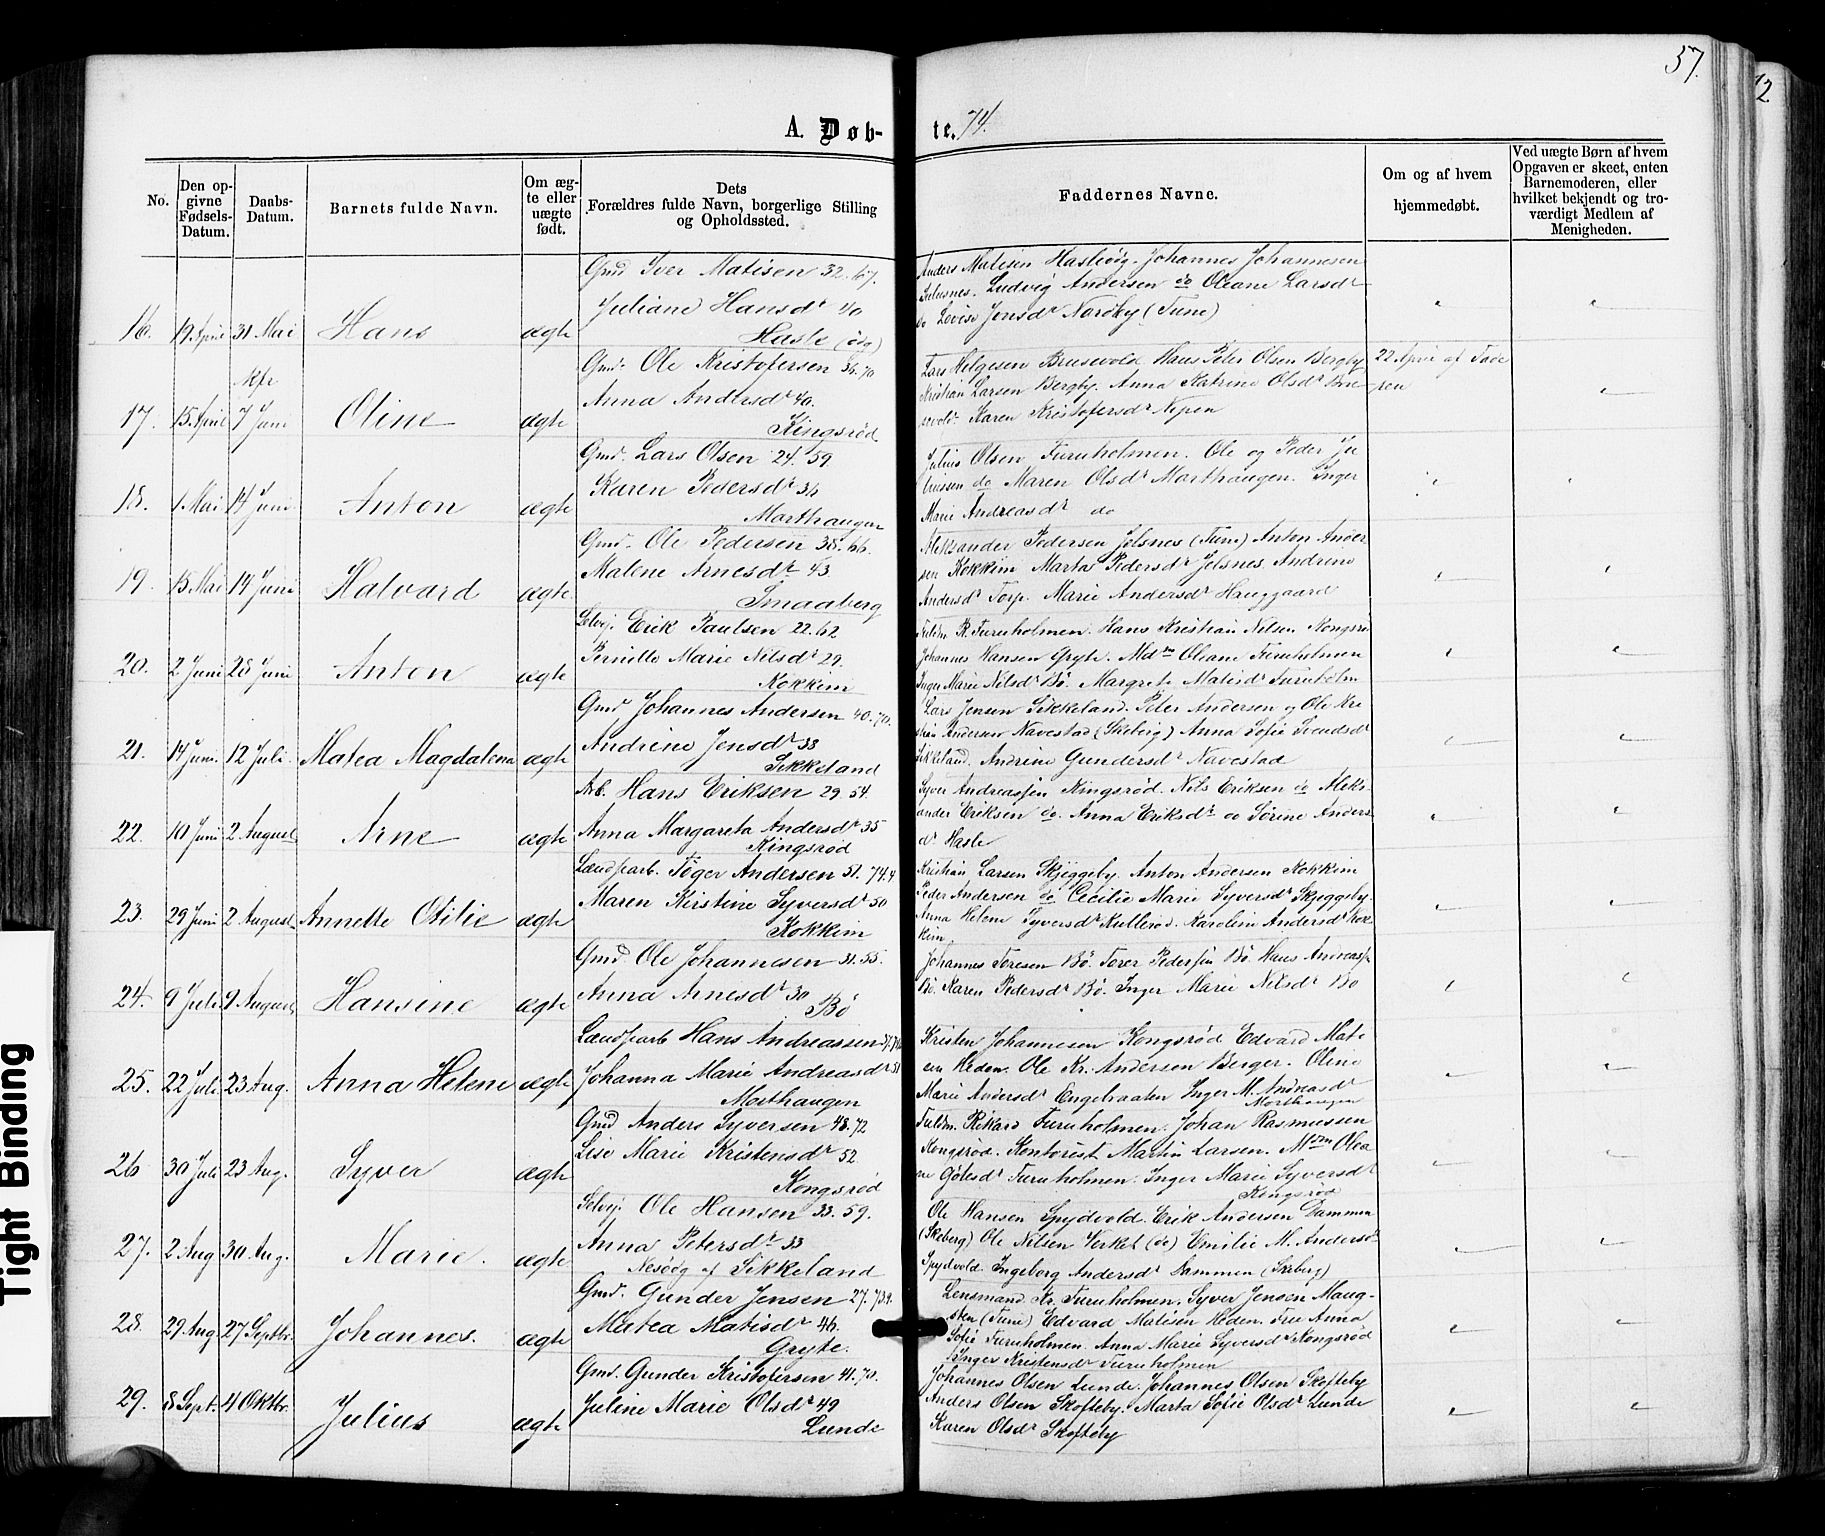 57.
12
A. Døb-
te. 74.
No.
Den op-
givne
Fødsels-
Datum.
Daabs-
Datum.
Barnets fulde Navn.
Om æg-
te eller
uægte
født.
Dets
Forældres fulde Navn, borgerlige Stilling
og Opholdssted.
Faddernes Navne.
Om og af hvem
hjemmedøbt.
Ved uægte Børn af hvem
Opgaven er skeet, enten
Barnemoderen, eller
hvilket bekjendt og tro-
værdigt Medlem af
Menigheden.
16. 19 April 31 Mai Hans ægte
Gmd Iver Matisen 32. 67.
Juliane Hansdr 40
Hasle (ødg)
Anders Matisen Hasleødg. Johannes Johannesen
Julusnes. Ludvig Andersen do Oleane Larsdr
do Lovise Jensdr Nordby (Tune)
17. 15 April Kfr 7 Juni Oline ægte
Gmd. Ole Kristofersen 36. 70
Anna Andersdr 40.
Kingsrød
Lars Helgesen Brusevold Hans Peter Olsen Bergby
Kristian Larsen Bergby. Anna Katrine Olsdr Bru
sevold. Karen Kristofersdr Nepen
22 April af Fade
ren
18. 1 Mai 14 Juni Anton ægte
Gmd. Lars Olsen 24. 59.
Karen Pedersdr 36
Morthaugen
Julius Olsen Furuholmen. Ole og Peder Ju
liussen do Maren Olsdr Morthaugen. Inger
Marie Andreasdr do
19. 15 Mai 14 Juni Halvard ægte
Gmd. Ole Pedersen 38. 66.
Malene Arnesdr 43.
Smaaberg
Aleksander Pedersen Jelsnes (Tune) Anton Ander
sen Kokkim Marta Pedersdr Jelsnes. Andrine
Andersdr Torp. Marie Andersdr Hauggaard
20. 2 Juni 28 Juni Anton ægte
Selvej. Erik Paulsen 22. 62
Pernille Marie Nilsdr 29.
Kokkim
Fuldm R. Furuholmen. Hans Kristian Nilsen Kongsrø
Johannes Hansen Gryte. Mdm Oleane Furuholmen
Inger Marie Nilsdr Bø. Margrete Matisdr Furuholm
21. 14 Juni. 12 Juli. Matea Magdalena ægte
Gmd Johannes Andersen 40. 70.
Andrine Jensdr 38
Sikkeland
Lars Jensen Sikkeland. Peter Andersen og Ole Kri
stian Andersen Navestad (Skeberg) Anna Sofie Svendsdr
Sikkeland. Andrine Gundersdr Navestad
22. 10 Juni 2 August Arne ægte
Arb. Hans Eriksen 29. 54.
Anna Margareta Andersdr 35
Kingsrød
Syver Andreassen Kingsrød. Nils Eriksen do Aleks-
ander Eriksen do. Anna Eriksdr do Sørine Anders
dr Hasle
23. 29 Juni 2 August Annette Otilie ægte
Landharb. Tøger Andersen 51. 74.4
Maren Kirstine Syversdr 50
Kokkim
Kristian Larsen Skjeggeby. Anton Andersen Kokkim
Peder Andersen do Cecilie Marie Syversdr Skjeggeby.
Anna Helene Syversdr Kullerød. Karoline Andersdr Kok
kim
24. 9 Juli. 9 August Hansine ægte
Gmd Ole Johannesen 31. 55.
Anna Arnesdr 30
Bø
Johannes Toresen Bø. Torer Pedersen Bø. Hans Andreass
Bø. Karen Pedersdr Bø. Inger Marie Nilsdr Bø
25. 22 Juli 23 Aug. Anna Helene ægte
Landharb Hans Andreassen
Johanna Marie Andreasdr 51
Morthaugen
Kristen Johannesen Kongsrød Edvard Mati
sen Heden. Ole Kr. Andersen Berger. Oline
Marie Andersdr Engebraaten Inger M. Andreasdr
Morthaugen
26 30 Juli 23 Aug. Syver ægte
Gmd Anders Syversen 48. 72
Lise Marie Kristensdr 52.
Kongsrød
Fuldm. Rikard Furuholmen. Johan Rasmussen
Kongsrød. Kontorist Martin Larsen. Mdm Olea
ne Gølesdr Furuholmen. Inger Marie Syversdr
Kingsrød
27. 2. Aug 30 Aug. Marie. ægte
Selvej. Ole Hansen 33. 59.
Anna Petersdr 33
Nesødg af Sikkeland
Ole Hansen Spydvold. Erik Andersen Dammen
(Skeberg) Ole Nilsen Verket (do) Emilie M. Andersdr
Spydvold. Ingeborg Andersdr Dammen (Skeberg)
28. 29 Aug. 27 Septbr. Johannes. ægte
Gmd. Gunder Jensen 27.
Matea Matisdr 46.
Gryte.
Lensmand Kr. Furuholmen. Syver Jensen Haug-
sten (Tune) Edvard Matisen Heden. Fru Anna
Sofie Furuholmen. Anna Marie Syversdr Kongsrød
Inger Kristensdr Furuholmen
29. 8 Sept. 4 Oktbr. Julius ægte
Gmd. Gunder Kristofersen 41. 70.
Juline Marie Olsdr 49
Lunde
Johannes Olsen Lunde. Johannes Olsen Skofteby
Anders Olsen Skofteby. Marta Sofie Olsdr Lunde
Karen Olsdr Skofteby
Tight Binding